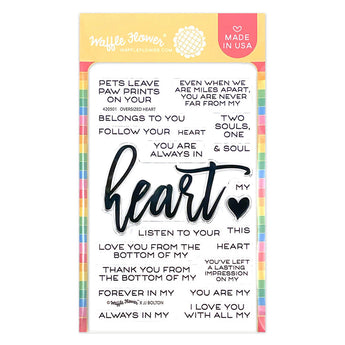 Waffle Flower®
WAFFLEFLOWER.COM
MADE IN
USA
PETS LEAVE
PAW PRINTS
ON YOUR
420501 OVERSIZED HEART
EVEN WHEN WE
ARE MILES APART,
YOU ARE NEVER
FAR FROM MY
BELONGS TO YOU
TWO
SOULS,
ONE
FOLLOW YOUR HEART
YOU ARE
ALWAYS IN
& SOUL
heart
MY
LISTEN TO YOUR THIS
LOVE YOU FROM THE
BOTTOM OF MY
HEART
THANK YOU FROM THE
BOTTOM OF MY
YOU'VE LEFT
A LASTING
IMPRESSION
ON MY
FOREVER IN MY
YOU ARE MY
© Waffle Flower® X JJ BOLTON
ALWAYS IN MY
I LOVE YOU
WITH ALL MY